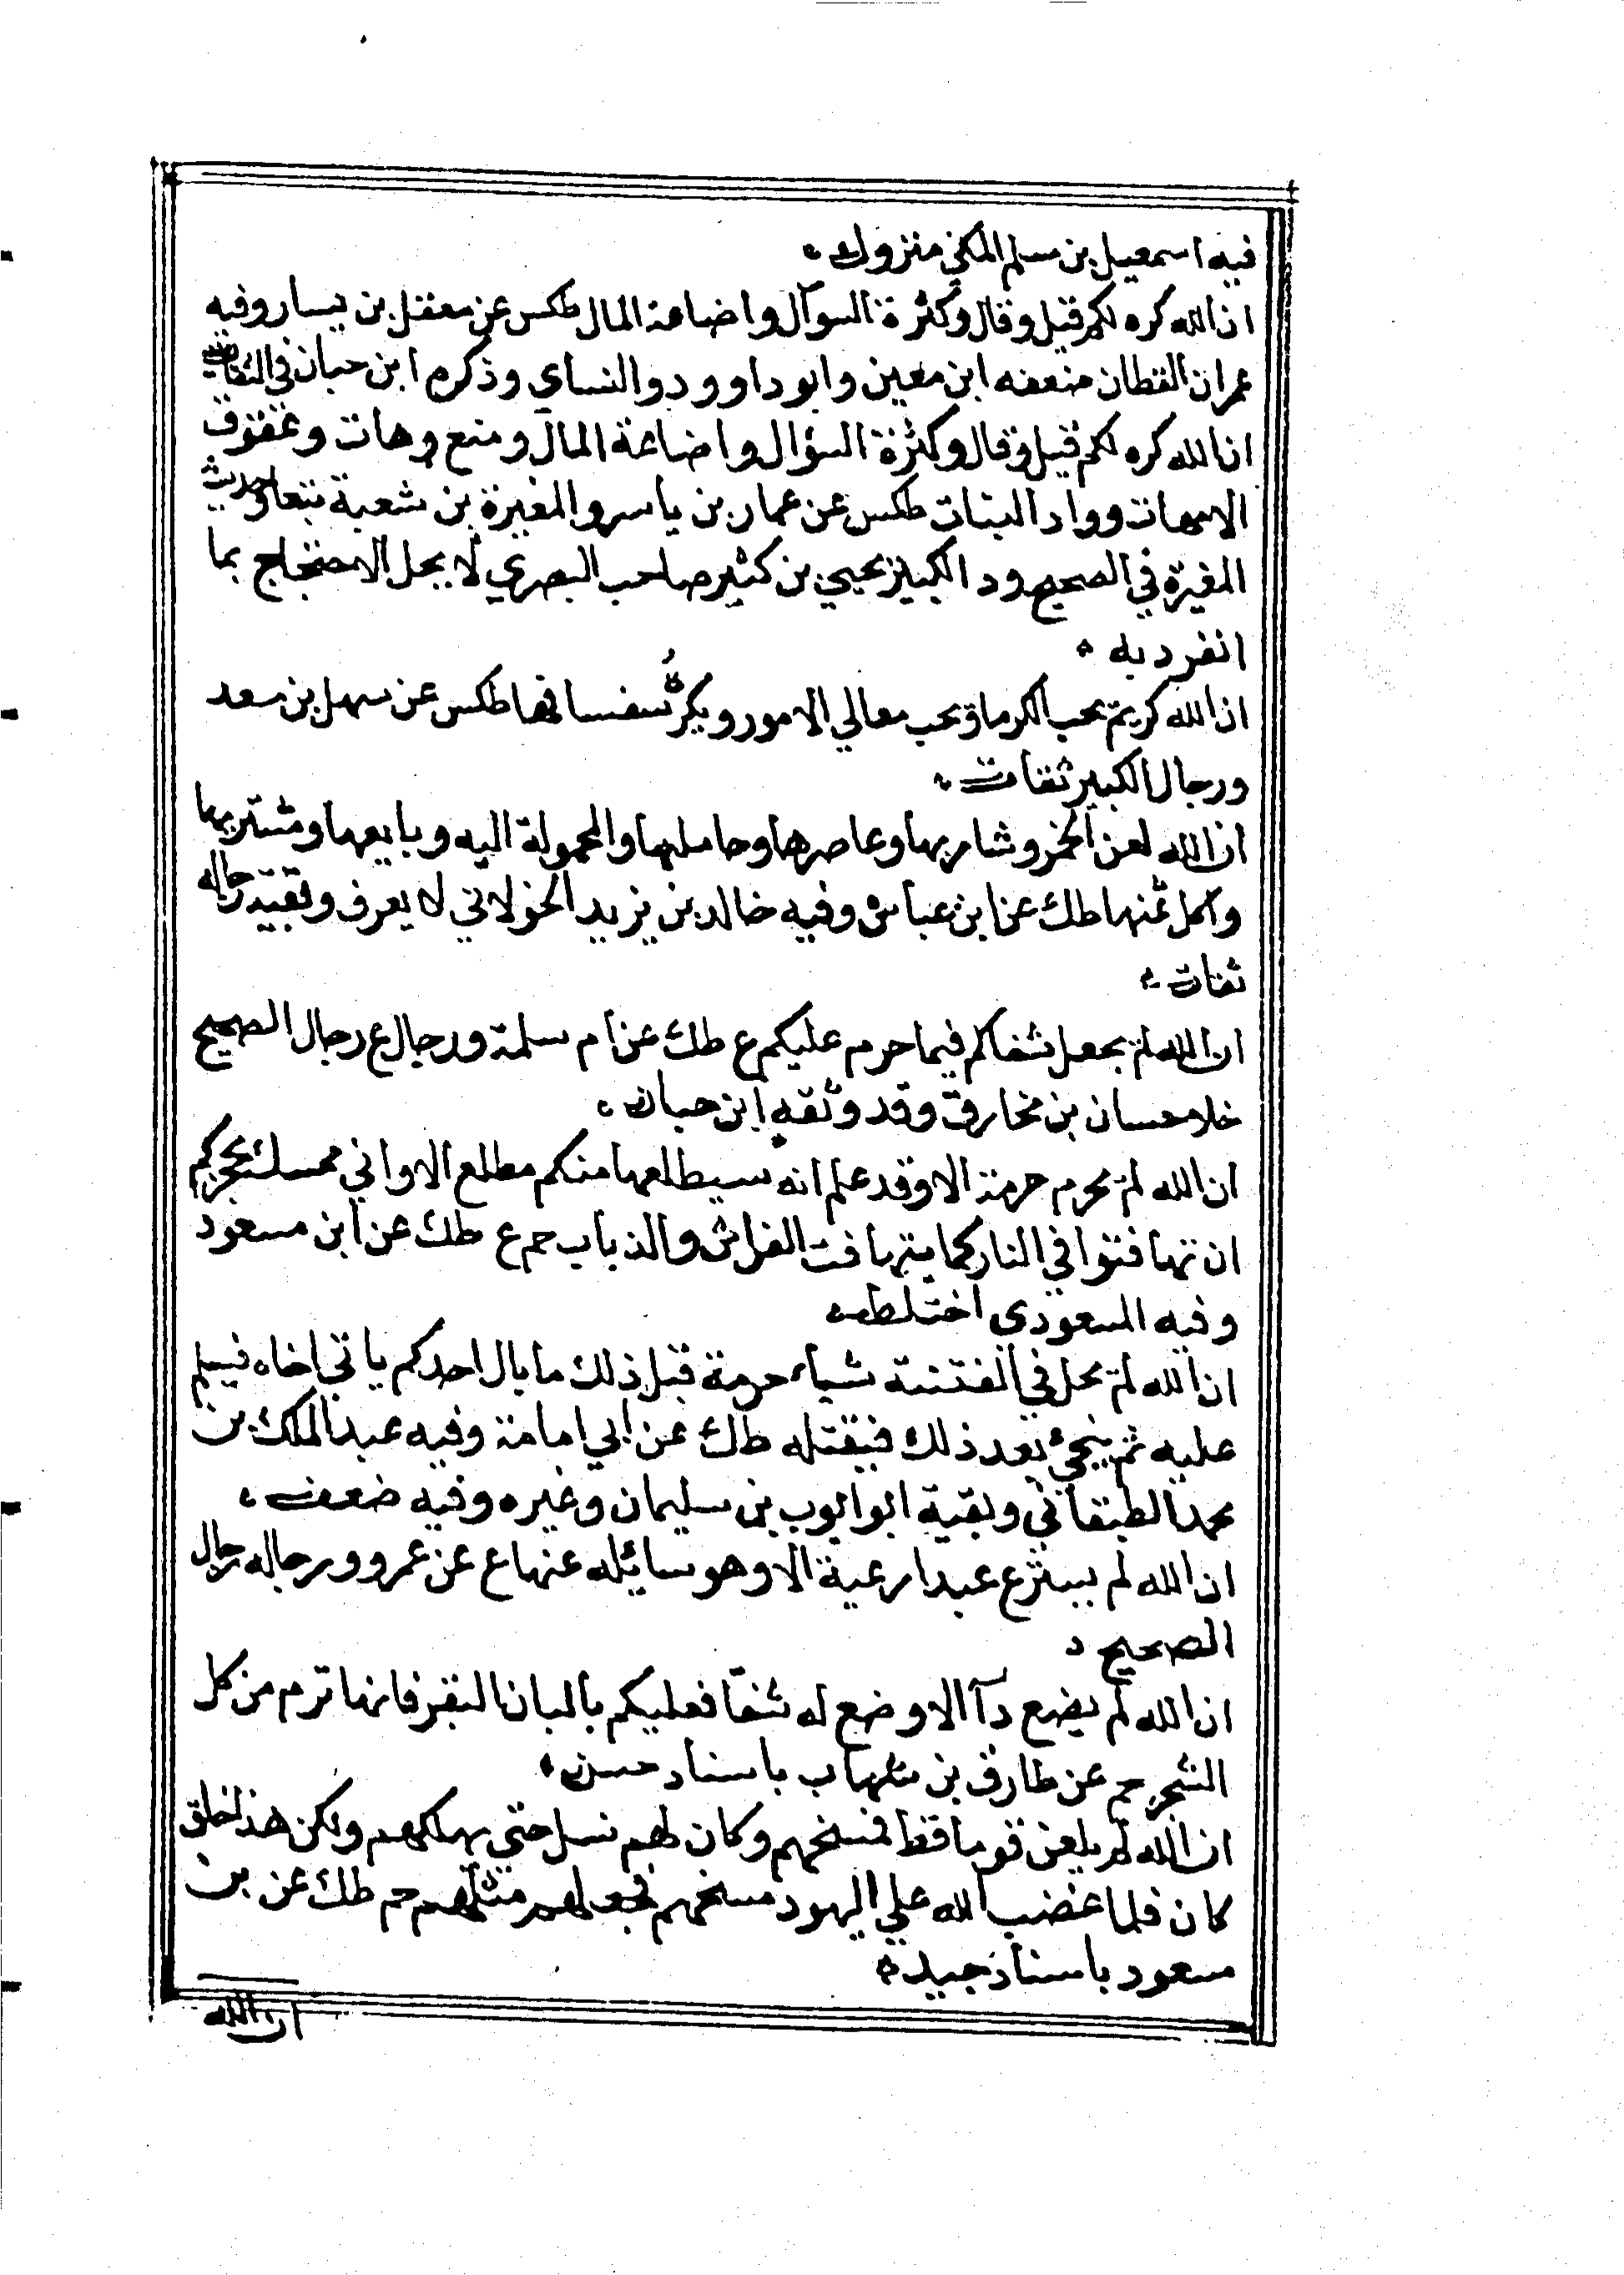 فيه اسمعيل بن مسلم المكي متروك
ان الله كره لكم قيل وقال وكثرة السوآل واضاعة المال طكس عن معقل بن يسار وفيه
عمران القطان ضعفه ابن معين وابو داوود والنساي وذكره ابن حبان في الثقات
ان الله كره لكم قيل وقال وكثرة السؤال واضاعة المال ومنع وهات وعقوق
الامهات وواد البنات طكس عن عمار بن ياسر والمغيرة بن شعبة حديث
المغيرة في الصحيح يحيي بن كثير صاحب البصري لا يحل الاحتجاج بما
انفرد به
ان الله كريم يحب الكرما ويحب معالي الامور ويكره سفسافها طكس عن سهل بن سعد
ورجال الكبير ثقات
ان الله لعن الخمر وشاربها وعاصرها وحاملها والمحمولة اليه وبايعها ومشتريها
واكل ثمنها طك عن ابن عباس وفيه خالد بن يزيد الخولاني لا يعرف وبقية رجاله
ثقات
ان الله لم يجعل شفاكم فيما حرم عليكم ع طك عن ام سلمة ورجال ع رجال الصحيح
خلا حسان بن مخارق وقد وثقه ابن حبان
ان الله لم يحرم حرمة الا وقد علم انه سيطلعها منكم مطلع الا واني ممسك بحجزكم
ان تهافتوا في النار كما يتهافت الفراش والذباب حم ع طك عن ابن مسعود
وفيه المسعودي اختلط
ان الله لم يحل في الفتنة شياء حرمة قبل ذلك ما بال احدكم ياتي اخاه فيسلم
عليه ثم يجئ بعد ذلك فيقتله طك عن ابي امامة وفيه عبد الملك بن
محمد وبقية ابو ايوب بن سليمان وغيره وفيه ضعف
ان الله لم يسترع عبدا رعية الا وهو سايله عنها ع عن عمرو ورجاله رجال
الصحيح
ان الله لم يضع دآ الا وضع له شفا فعليكم بالبان البقر فانها ترم من كل
الشجر حم عن طارق بن شهاب باسناد حسن
ان الله لم يلعن قوما قط فمسخهم وكان لهم نسل حتى يهلكهم ولكن هذا خلق
كان فلما غضب الله علي اليهود مسخهم فجعلهم مثلهم حم طك عن بن
مسعود باسناد جيد
ان الله